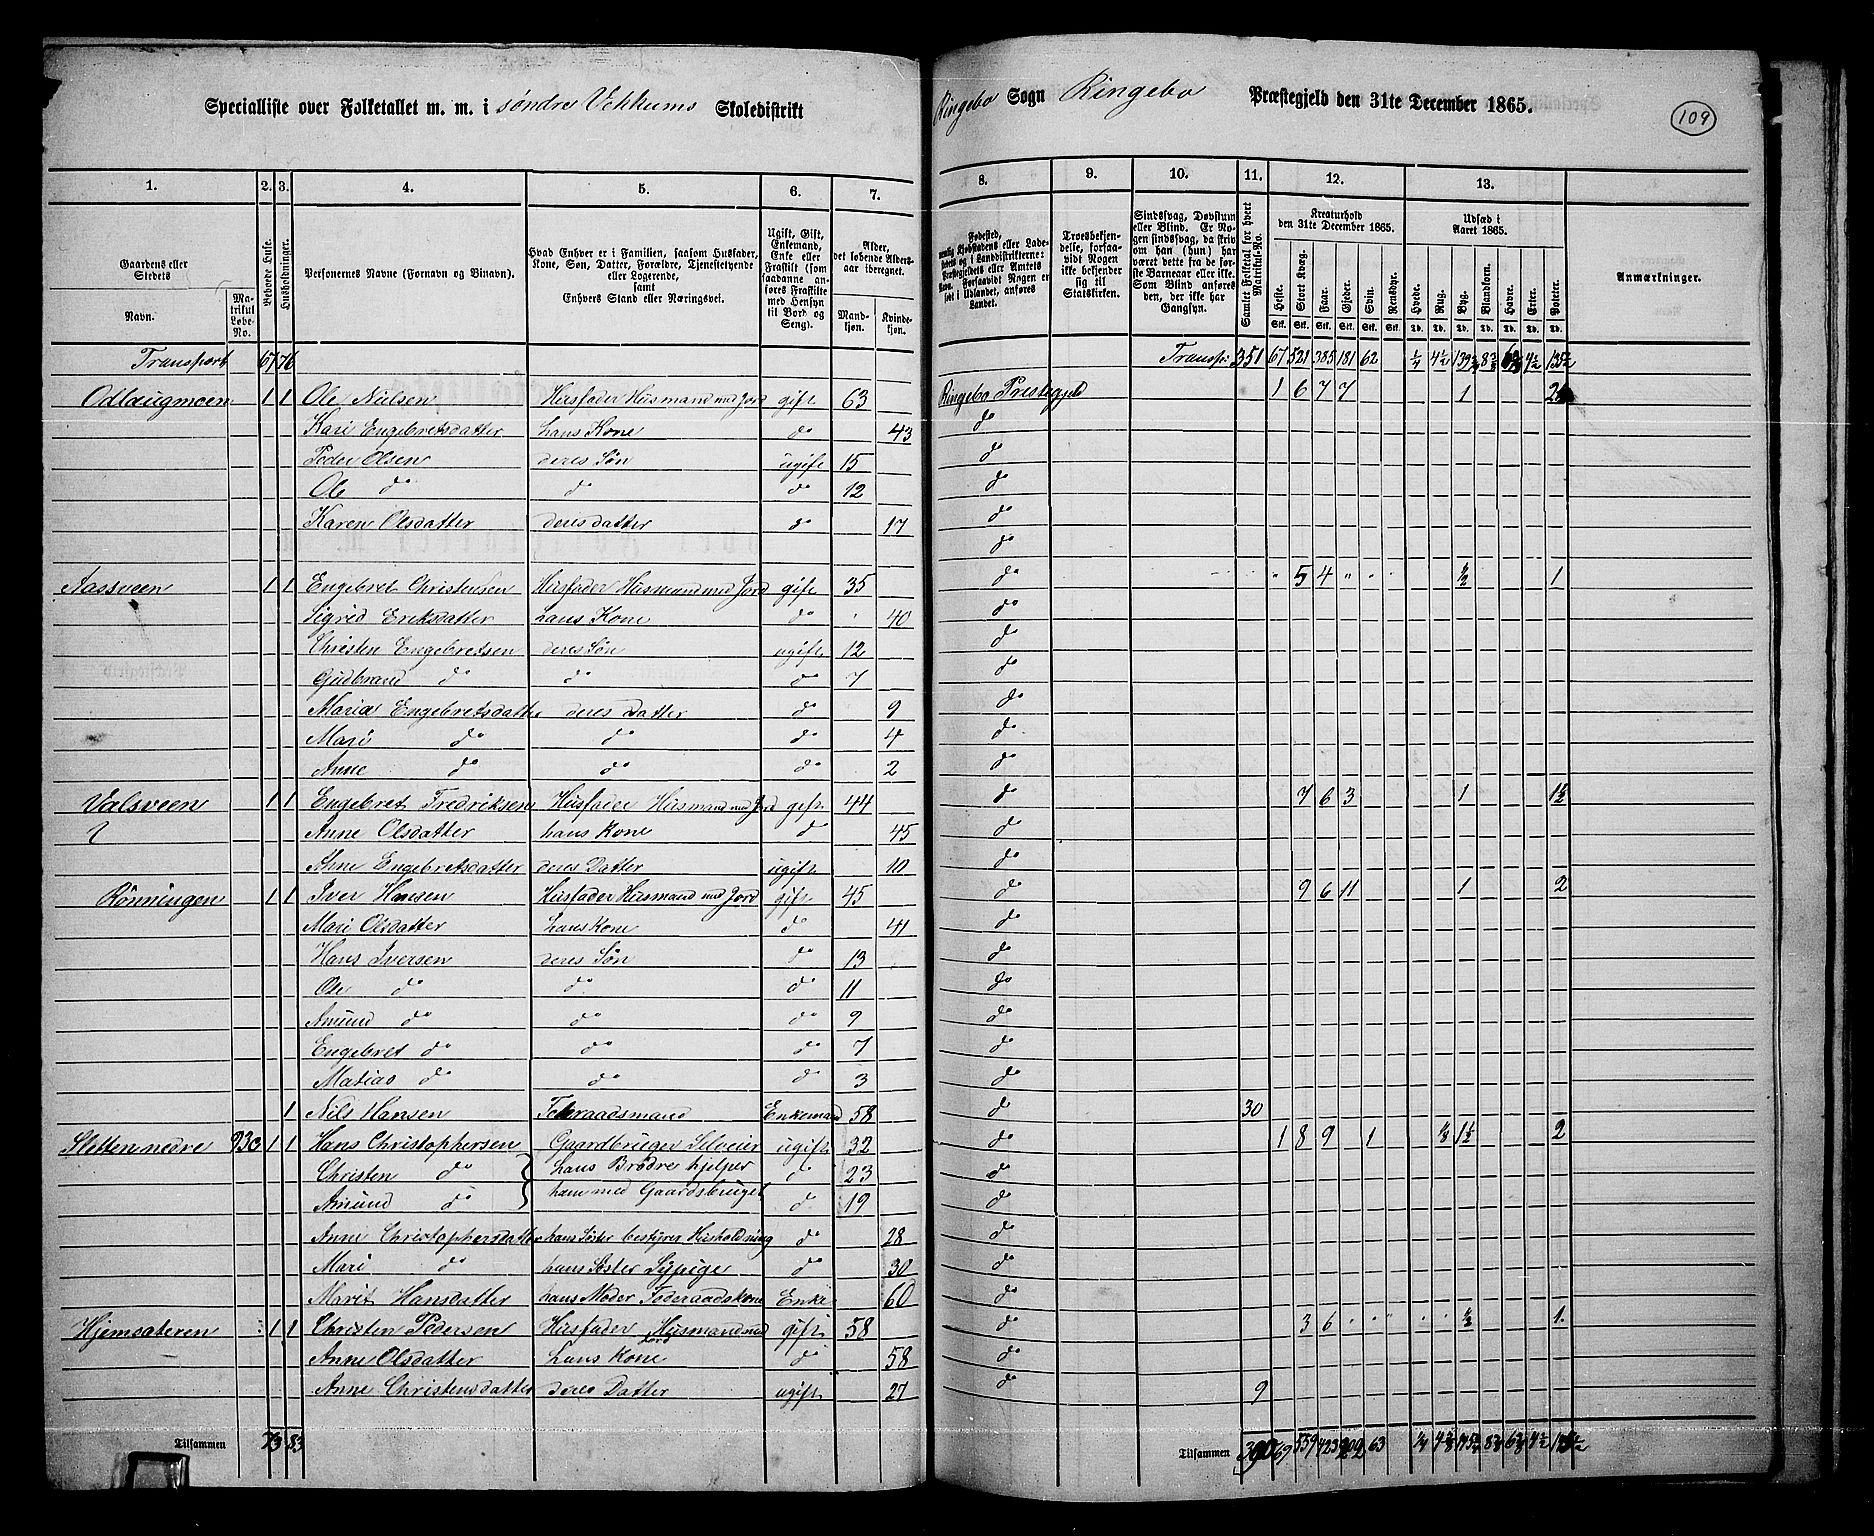 Specialliste over Folketallet m. m. i søndre Vekkums Skoledistrikt
Ringebo Sogn Ringebo Præstegjeld den 31te December 1865.
109
1. 2. 3. 4. 5. 6. 7. 8. 9. 10. 11. 12. 13.
Gaardens eller Stedets
Navn.
Matrikul Løbe-No.
Beboede Huse.
Husholdninger.
Personernes Navne (Fornavn og Binavn).
Hvad Enhver er i Familien, saasom Husfader, Kone, Søn, Datter, Forældre, Tjenstetyende eller Logerende,
samt
Enhvers Stand eller Næringsvei.
Ugift, Gift, Enkemand, Enke eller Fraskilt (som saadanne anføres Fraskilte med Hensyn til Bord og Seng).
Alder, det løbende Alders-aar iberegnet.
Mandkjøn. Kvindekjøn.
Fødested,
Troesbekjendelse, forsaavidt Nogen ikke bekjender sig til Statskirken.
Sindssvag, Døvstum eller Blind. Er Nogen sindssvag, da skrives om han (hun) har været dette fra de første Barneaar eller ikke. Som Blind anføres den, der ikke har Gangsyn.
Samlet Folketal for hvert Matrikuls-No.
Kreaturhold den 31te December 1865.
Heste. Stort Kvæg. Faar. Gjeder. Svin. Rensdyr.
Udsæd i Aaret 1865.
Hvede. Rug. Byg. Blandkorn. Havre. Erter. Poteter.
Anmærkninger.
Transport 67 76 Transp: 351 67 521 385 181 62 ¼ 4½
Odlaugmoen 1 1 Ole Nielsen Husfader Husmand med Jord gift 63 Ringebo Prestegjeld 1 6 7 7 1
Kari Engebretsdatter hans Kone do 43 do
Peder Olsen deres Søn ugift 15 do
Ole do do do 12 do
Karen Olsdatter deres datter do 17 do
do
Aassveen 1 1 Engebret Christensen Husfader Husmand med Jord gift 35 do 5 4 ½ 1
Sigrid Eriksdatter hans Kone do 40 do
Christen Engebretsen deres Søn ugift 12 do
Gudbrand do do do 7 do
Maria Engebretsdatter deres Datter do 9 do
Mari do do do 4 do
Anne do do do 2 do
Valsveen 1 1 Engebret Fredriksen Husfader Husmand med Jord gift 44 do 7 6 3 1 1½
Anne Olsdatter hans Kone do 45 do
Anne Engebretsdatter deres Datter ugift 10 do
Rønningen 1 1 Iver Hansen Husfader Husmand med Jord gift 45 do 9 6 11 1 2
Mari Olsdatter hans Kone do 41 do
Hans Iversen deres Søn do 13 do
Ole do do do 11 do
Amund do do do 9 do
Engebret do do do 7 do
Matias do do do 3 do
1 Nils Hansen Enkemand 58 do 30
Sletten nedre 230 1 1 Hans Christophersen Gaardbruger Selveier ugift 32 do 1 8 9 1 1½ 2
Christen do hans Brødre hjelper do 23 do
Amund do ham med Gaardsbruget do 19 do
Anne Christophersdatter hans Søster bestyrer Husholdning do 28 do
Mari do hans Søster Sypige do 30 do
Marit Hansdatter hans Moder Føderaadskone Enke 60 do
Hjemsæteren 1 1 Christen Pedersen Husfader Husmand med Jord gift 58 do 3 6 ½ 1
Anne Olsdatter hans Kone do 58 do
Anne Christensdatter deres Datter ugift 27 do 9
Tilsammen 73 83 Tilsammen 390 69 559 423 209 63 ¼